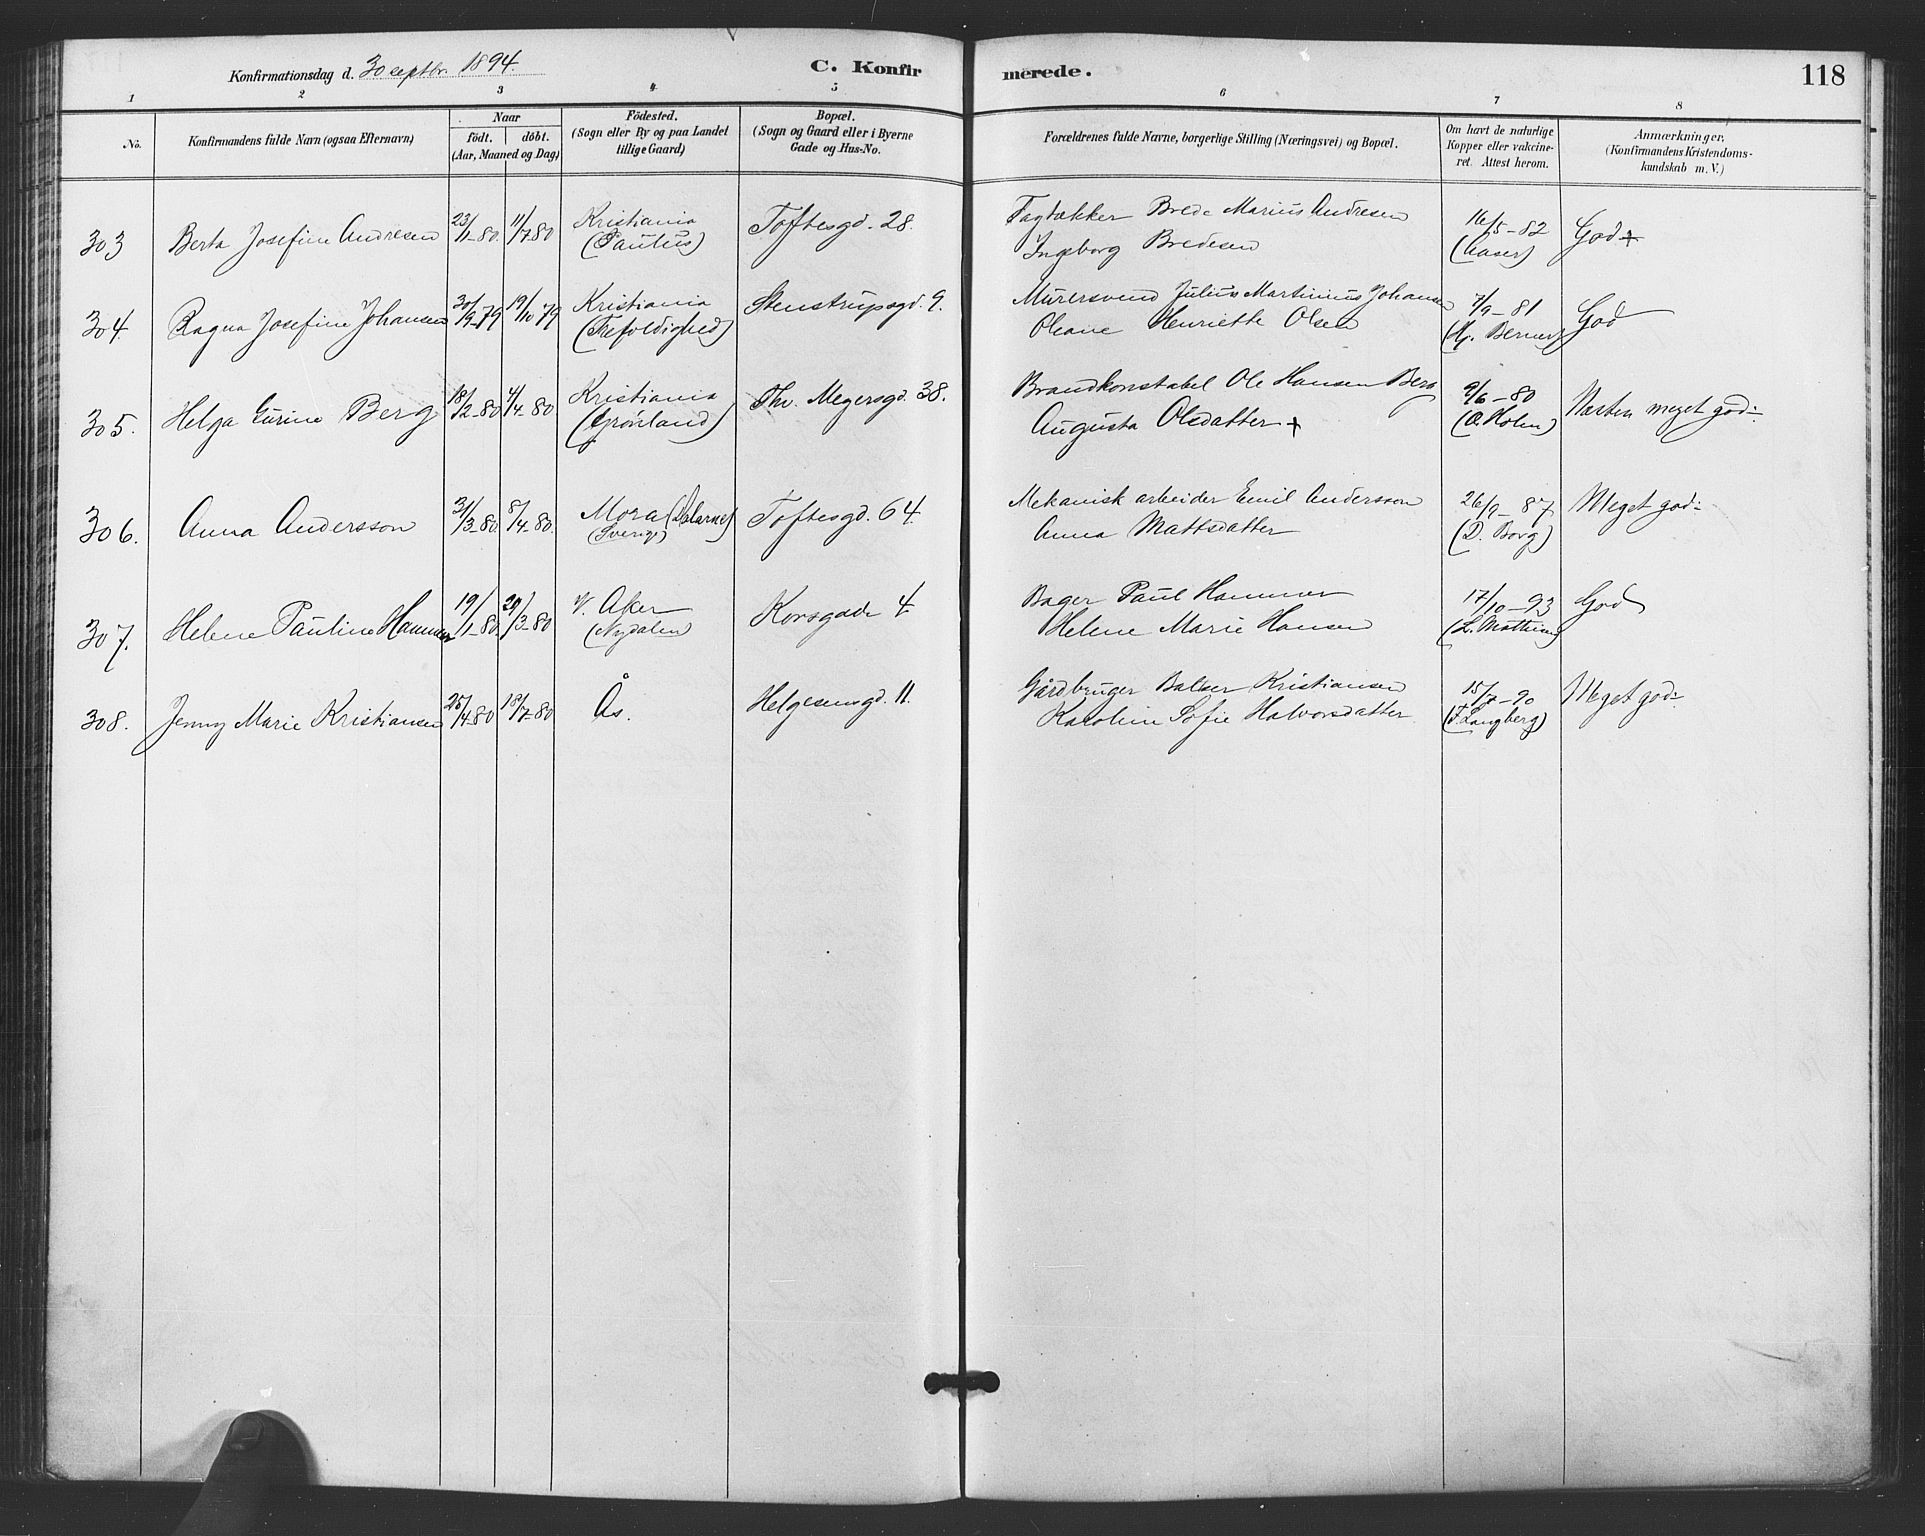 Konfirmationsdag d. 30 septbr. 1894. C. Konfirmerede. 118
1 2 3 4 5 6 7 8
No. Konfirmandens fulde Navn (ogsaa Efternavn) Naar födt. döbt. (Aar, Maaned og Dag) Födested. (Sogn eller By og paa Landet tillige Gaard) Bopæl. (Sogn og Gaard eller i Byerne Gade og Hus-No. Forældrenes fulde Navne, borgerlige Stilling (Næringsvei) og Bopæl. Om havt de naturlige Kopper eller vakcineret. Attest herom. Anmærkninger, (Konfirmandens Kristendomskundskab m. V.)
303 Berta Josefine Andresen 23/1-80. 11/7 80 Kristiania (Paulus) Toftesgd. 28. Tagtækker Brede Marius Andresen 16/5-82 God+
Ingeborg Bredesen (Aaser)
304. Ragna Josefine Johansen 30/9-79 19/10 79 Kristiania (Trefoldighed) Stenstrupsgd. 9. Murersvend Julius Martinius Johansen 7/9-81 God
Oleane Henriette Olsen (Hj. Berner)
305. Helga Gurine Berg 18/2-80 4/4-80 Kristiania (Grønland) Thv. Meyersgd. 38. Brandkonstabel Ole Hansen Berg 9/6-80 Næsten meget god:
Augusta Olsdatter + (A. Holm)
306. Anna Andersson 31/3-80 8/4-80. Mora (Dalarne) (Sverige) Toftesgd. 64. Mekanisk arbeider Emil Andersson 26/9-87 Meget god:
Anna Mattsdatter (D. Borg)
307. Helene Pauline Hammer 19/1-80 29/3-80 V. Aker (Nydalen) Korsgade 4. Bager Paul Hammer 17/10-93 God
Helene Marie Hansen (L. Mathisen)
308. Jenny Marie Kristiansen 25/4-80 18/7-80 Ås. Helgesensgd. 11. Gårdbruger Baltser Kristiansen 15/7-90 Meget god:
Karoline Sofie Halvorsdatter (F. Langberg)